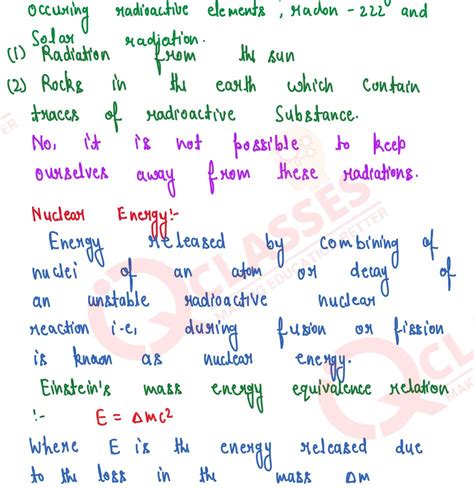 occuring radioactive elements, radon - 222 and
Solar radiation.
(1) Radiation from the sun
(2) Rocks in the earth which contain
traces of radioactive Substance.
No, it is not possible to keep
ourselves away from these radiations.
Nuclear Energy:-
Energy released by combining of
nuclei of an atom or decay of
an unstable radioactive nuclear
reaction i-e, during fusion or fission
is known as nuclear energy.
Einstein's mass energy equivalence relation
:- E = Δmc²
Where E is the energy released due
to the loss in the mass Δm
CLASSES
MAKING EDUCATION BETTER